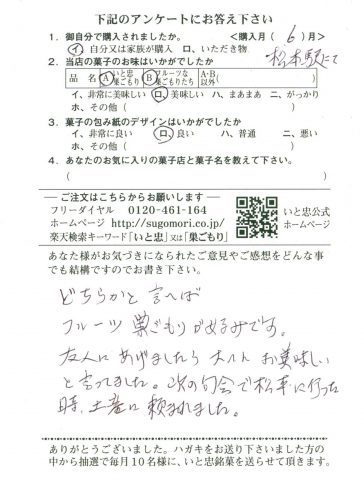 下記のアンケートにお答え下さい
1. 御自分で購入されましたか。 <購入月( 6 )月>
イ、自分又は家族が購入 ロ、いただき物 松本駅にて
2. 当店の菓子のお味はいかがでしたか
品名 A いと忠巣ごもり B フルーツな巣ごもりたち A・B以外
イ、非常に美味しい ロ、美味しい ハ、まあまあ ニ、がっかり
ホ、その他( )
3. 菓子の包み紙のデザインはいかがでしたか
イ、非常に良い ロ、良い ハ、普通 ニ、悪い
ホ、その他( )
4. あなたのお気に入りの菓子店と菓子名を教えて下さい。
( )
ご注文はこちらからお願いします
フリーダイヤル 0120-461-164
ホームページ http://sugomori.co.jp/
楽天検索キーワード「いと忠」又は「巣ごもり」
いと忠公式
ホームページ
あなた様がお気づきになられたご意見やご感想をどんな事
でも結構ですのでお書き下さい。
どちらかと言へば
フルーツ巣ごもりがめずみです。
友人にあげましたら大ルトお美味しい
と言ってました。次の句会で松本に行った
時、土産に頼まれました。
ありがとうございました。ハガキをお送り下さいました方の
中から抽選で毎月10名様に、いと忠銘菓を送らせて頂きます。